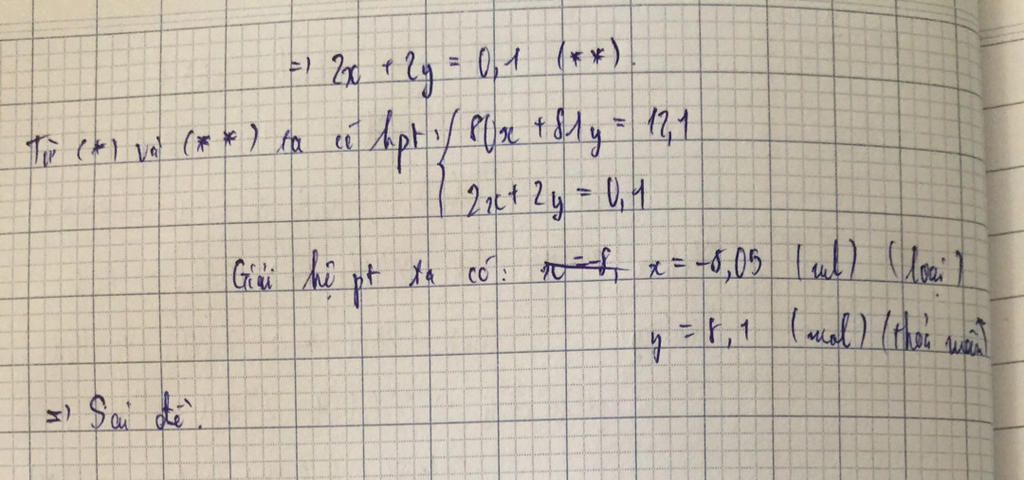 => 2x + 2y = 0,1 (**).
Từ (*) và (**) ta có hpt: { 80x + 81y = 12,1
2x + 2y = 0,1
Giải hệ pt ta có: x = -8, x = -8,05 (mol) (loại)
y = 8,1 (mol) (thoả mãn)
=> Sai đề.